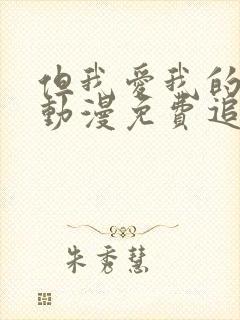 但我愛我的
動漫免費追
朱秀慧